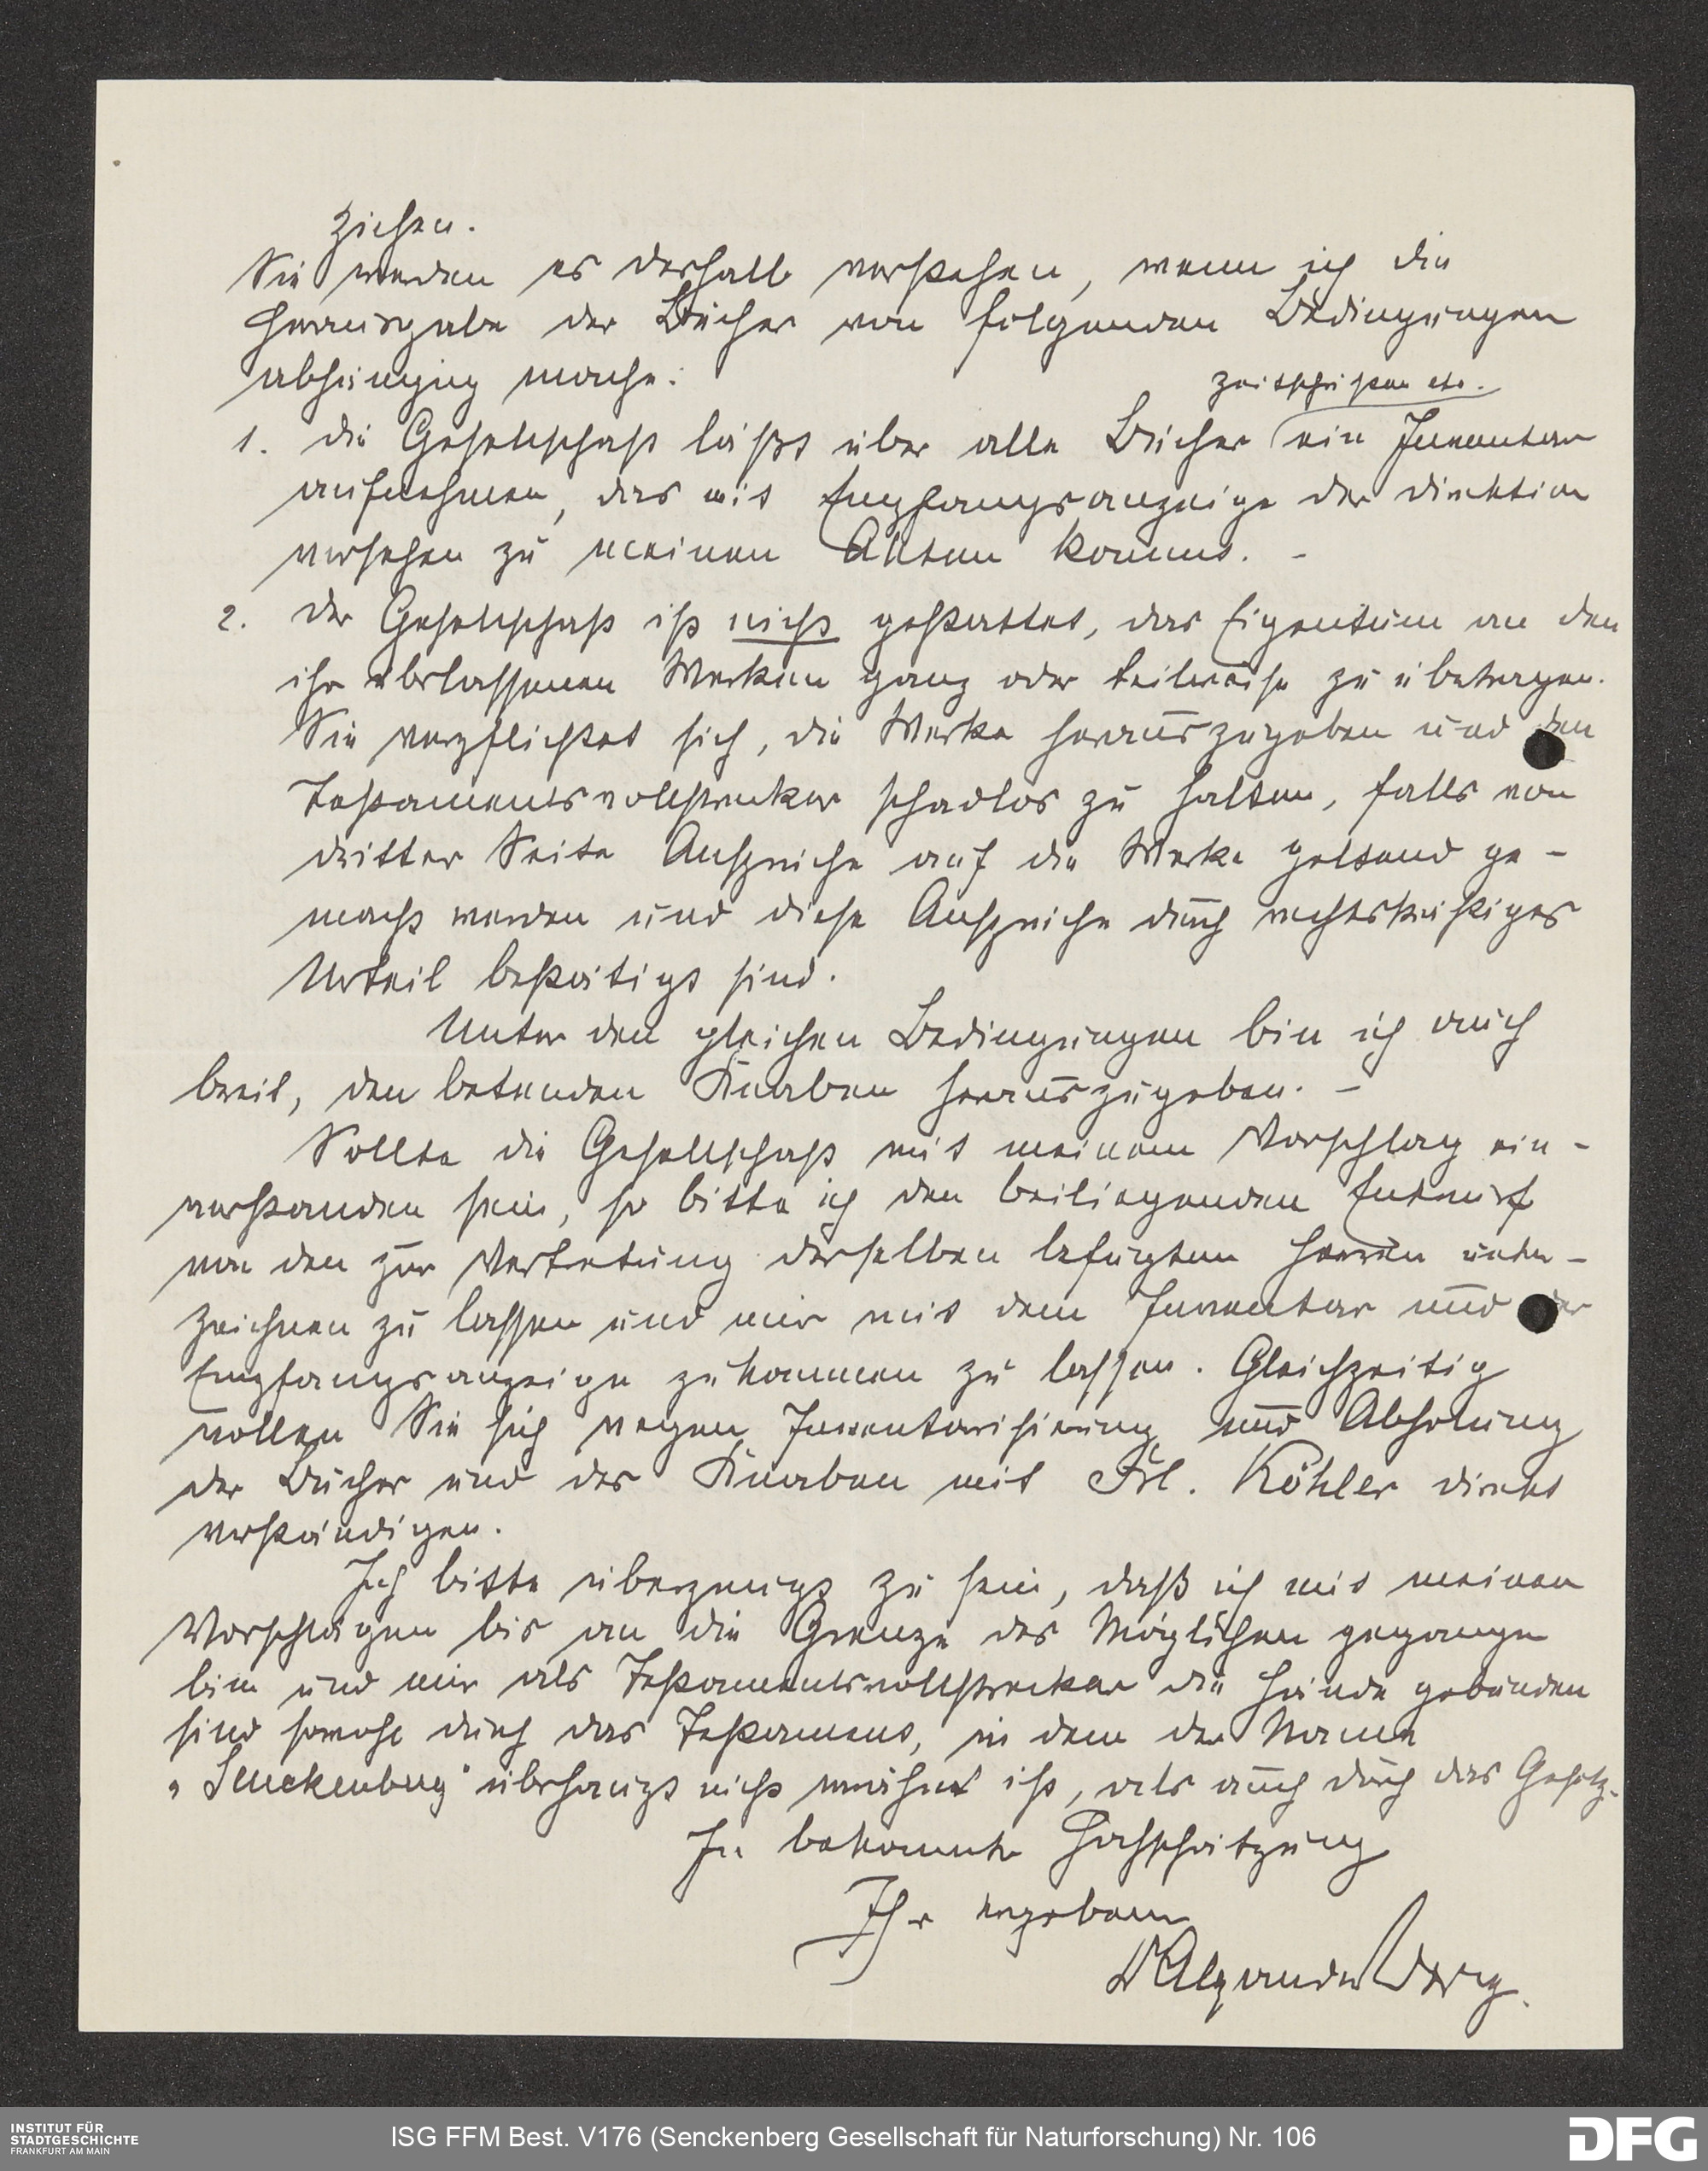 ziehen.
Sie werden es deshalb verstehen, wenn ich die
Herausgabe der Bücher von folgenden Bedingungen
abhängig mache:
Zeitschriften etc.
1. die Gesellschaft läßt über alle Bücher ein Inventar
aufnehmen, das mit Empfangsanzeige der Direktion
versehen zu meinen Akten kommt. -
2. der Gesellschaft ist nicht gestattet, das Eigentum an den
ihr überlassenen Werken ganz oder teilweise zu übertragen.
Sie verpflichtet sich, die Werke herauszugeben und den
Testamentsvollstrecker schadlos zu halten, falls von
dritter Seite Ansprüche auf die Werke geltend ge-
macht werden und diese Ansprüche durch rechtskräftiges
Urteil bestätigt sind.
Unter den gleichen Bedingungen bin ich auch
bereit, den betenden Knaben herauszugeben. -
Sollte die Gesellschaft mit meinem Vorschlag ein-
verstanden sein, so bitte ich den beiliegenden Entwurf
von den zur Vertretung derselben befugten Herren unter-
zeichnen zu lassen und mir mit dem Inventar und der
Empfangsanzeige zukommen zu lassen. Gleichzeitig
wollen Sie sich wegen Inventarisierung und Abholung
der Bücher und des Knaben mit Frl. Köhler direkt
verständigen.
Ich bitte überzeugt zu sein, daß ich mit meinen
Vorschlägen bis an die Grenze des Möglichen gegangen
bin und mir als Testamentsvollstrecker die Hände gebunden
sind sowohl durch das Testament, in dem der Name
„Senckenberg" überhaupt nicht erwähnt ist, als auch durch das Gesetz.
In bekannter Hochschätzung
Ihr ergebener
Dr Alexander Berg.
INSTITUT FÜR
STADTGESCHICHTE
FRANKFURT AM MAIN
ISG FFM Best. V176 (Senckenberg Gesellschaft für Naturforschung) Nr. 106
DFG